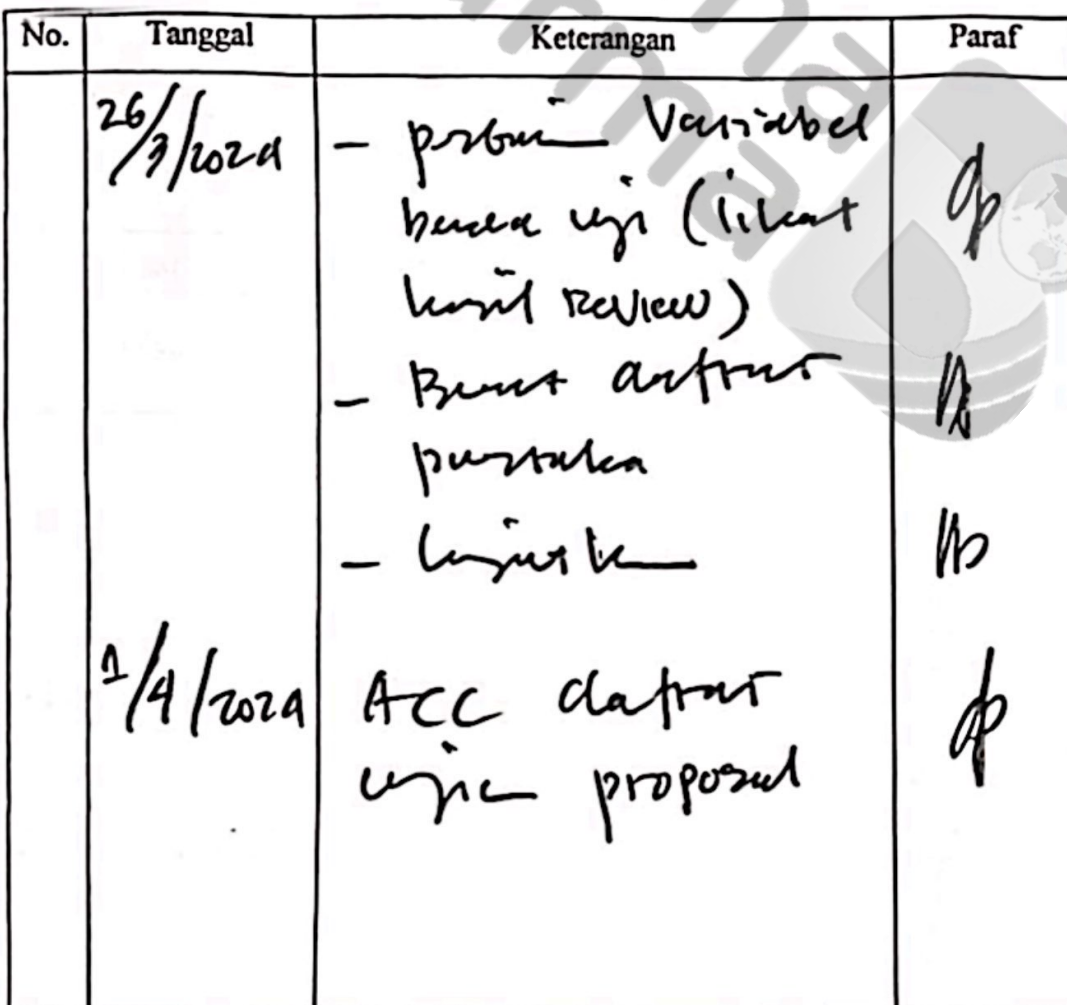 No. Tanggal Keterangan Paraf
26/3/2024 - perbaiki Variabel
uji (lihat
hasil Review)
- Buat daftar
pustaka
- Lanjutkan
1/4/2024 ACC daftar
ujian proposal